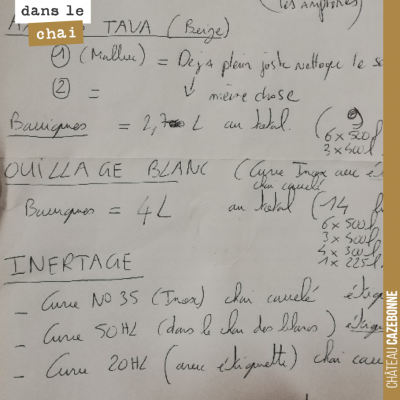 dans le
chai
(les amphores)
TAVA (Beige)
① (Malbec) = Déjà plein juste nettoyer le
② = ↓ même chose
Barriques = 2, L au total. (9
6 x 500l
3 x 400l
OUILLAGE BLANC (Cuve Inox avec
chai carrelé
Barriques = 4L au total (14
6 x 500l
3 x 400l
4 x 300l
1 x 225l
INERTAGE
- Cuve N°35 (Inox) chai carrelé
- Cuve 50HL (dans le chai des blancs)
- Cuve 20HL (avec étiquette) chai
CHÂTEAU CAZEBONNE